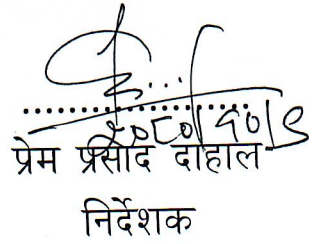 २०८०।१०।९
प्रेम प्रसाद दाहाल
निर्देशक